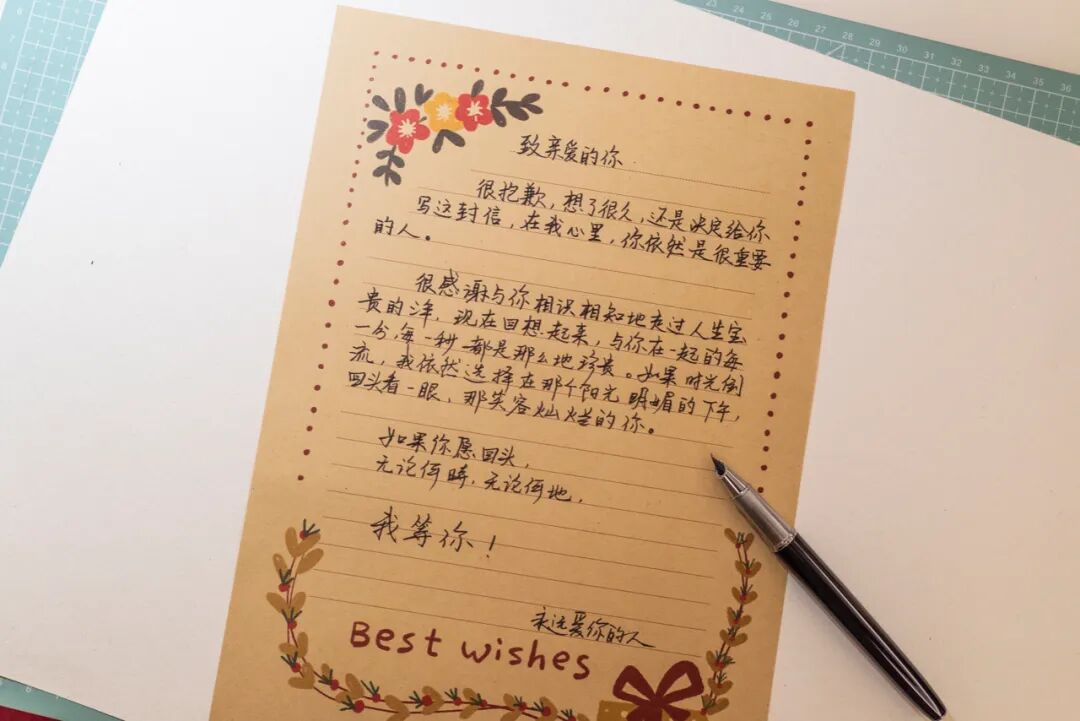 致亲爱的你
很抱歉,想了很久,还是决定给你
写这封信,在我心里,你依然是很重要
的人。
很感谢与你相识相知地走过人生宝
贵的 现在回想起来,与你在一起的每
一分,每一秒都是那么地珍贵。如果时光倒
流,我依然选择在那个阳光明媚的下午,
回头看一眼,那笑容灿烂的你。
如果你愿回头,
无论何时,无论何地,
我等你!
永远爱你的人
Best wishes
23 24 25 26 27 28 29 30 31 32 33 34 35 36